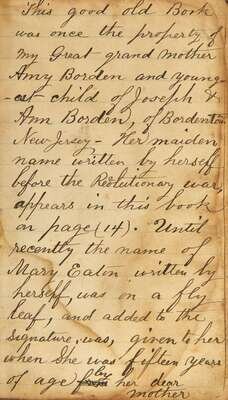 This good old Book
was once the property of
my Great grand mother
Amy Borden and young-
-est child of Joseph &
Ann Borden, of Bordentown
New Jersey - Her maiden
name written by herself
before the Revolutionary war,
appears in this book
on page (14). Until
recently the name of
Mary Ealin written by
herself, was on a fly
leaf, and added to the
signature, was, given to her
when She was fifteen years
of age by her dear
mother